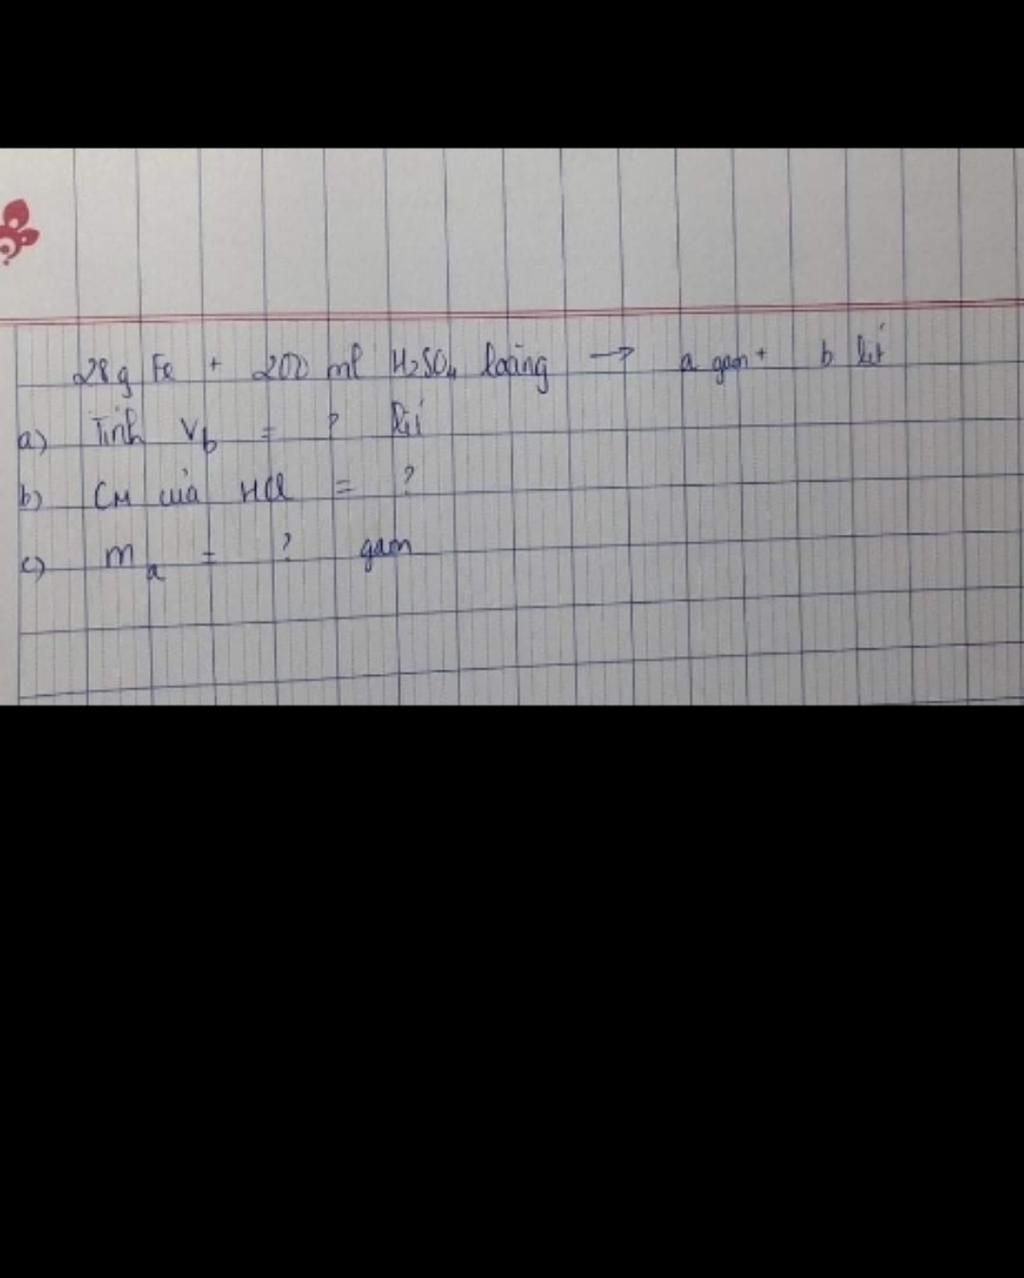 28g Fe + 200 ml H₂SO₄ loãng → a gam + b lít
a) Tính V_b = ? lít
b) CM của HCl = ?
c) m_a = ? gam